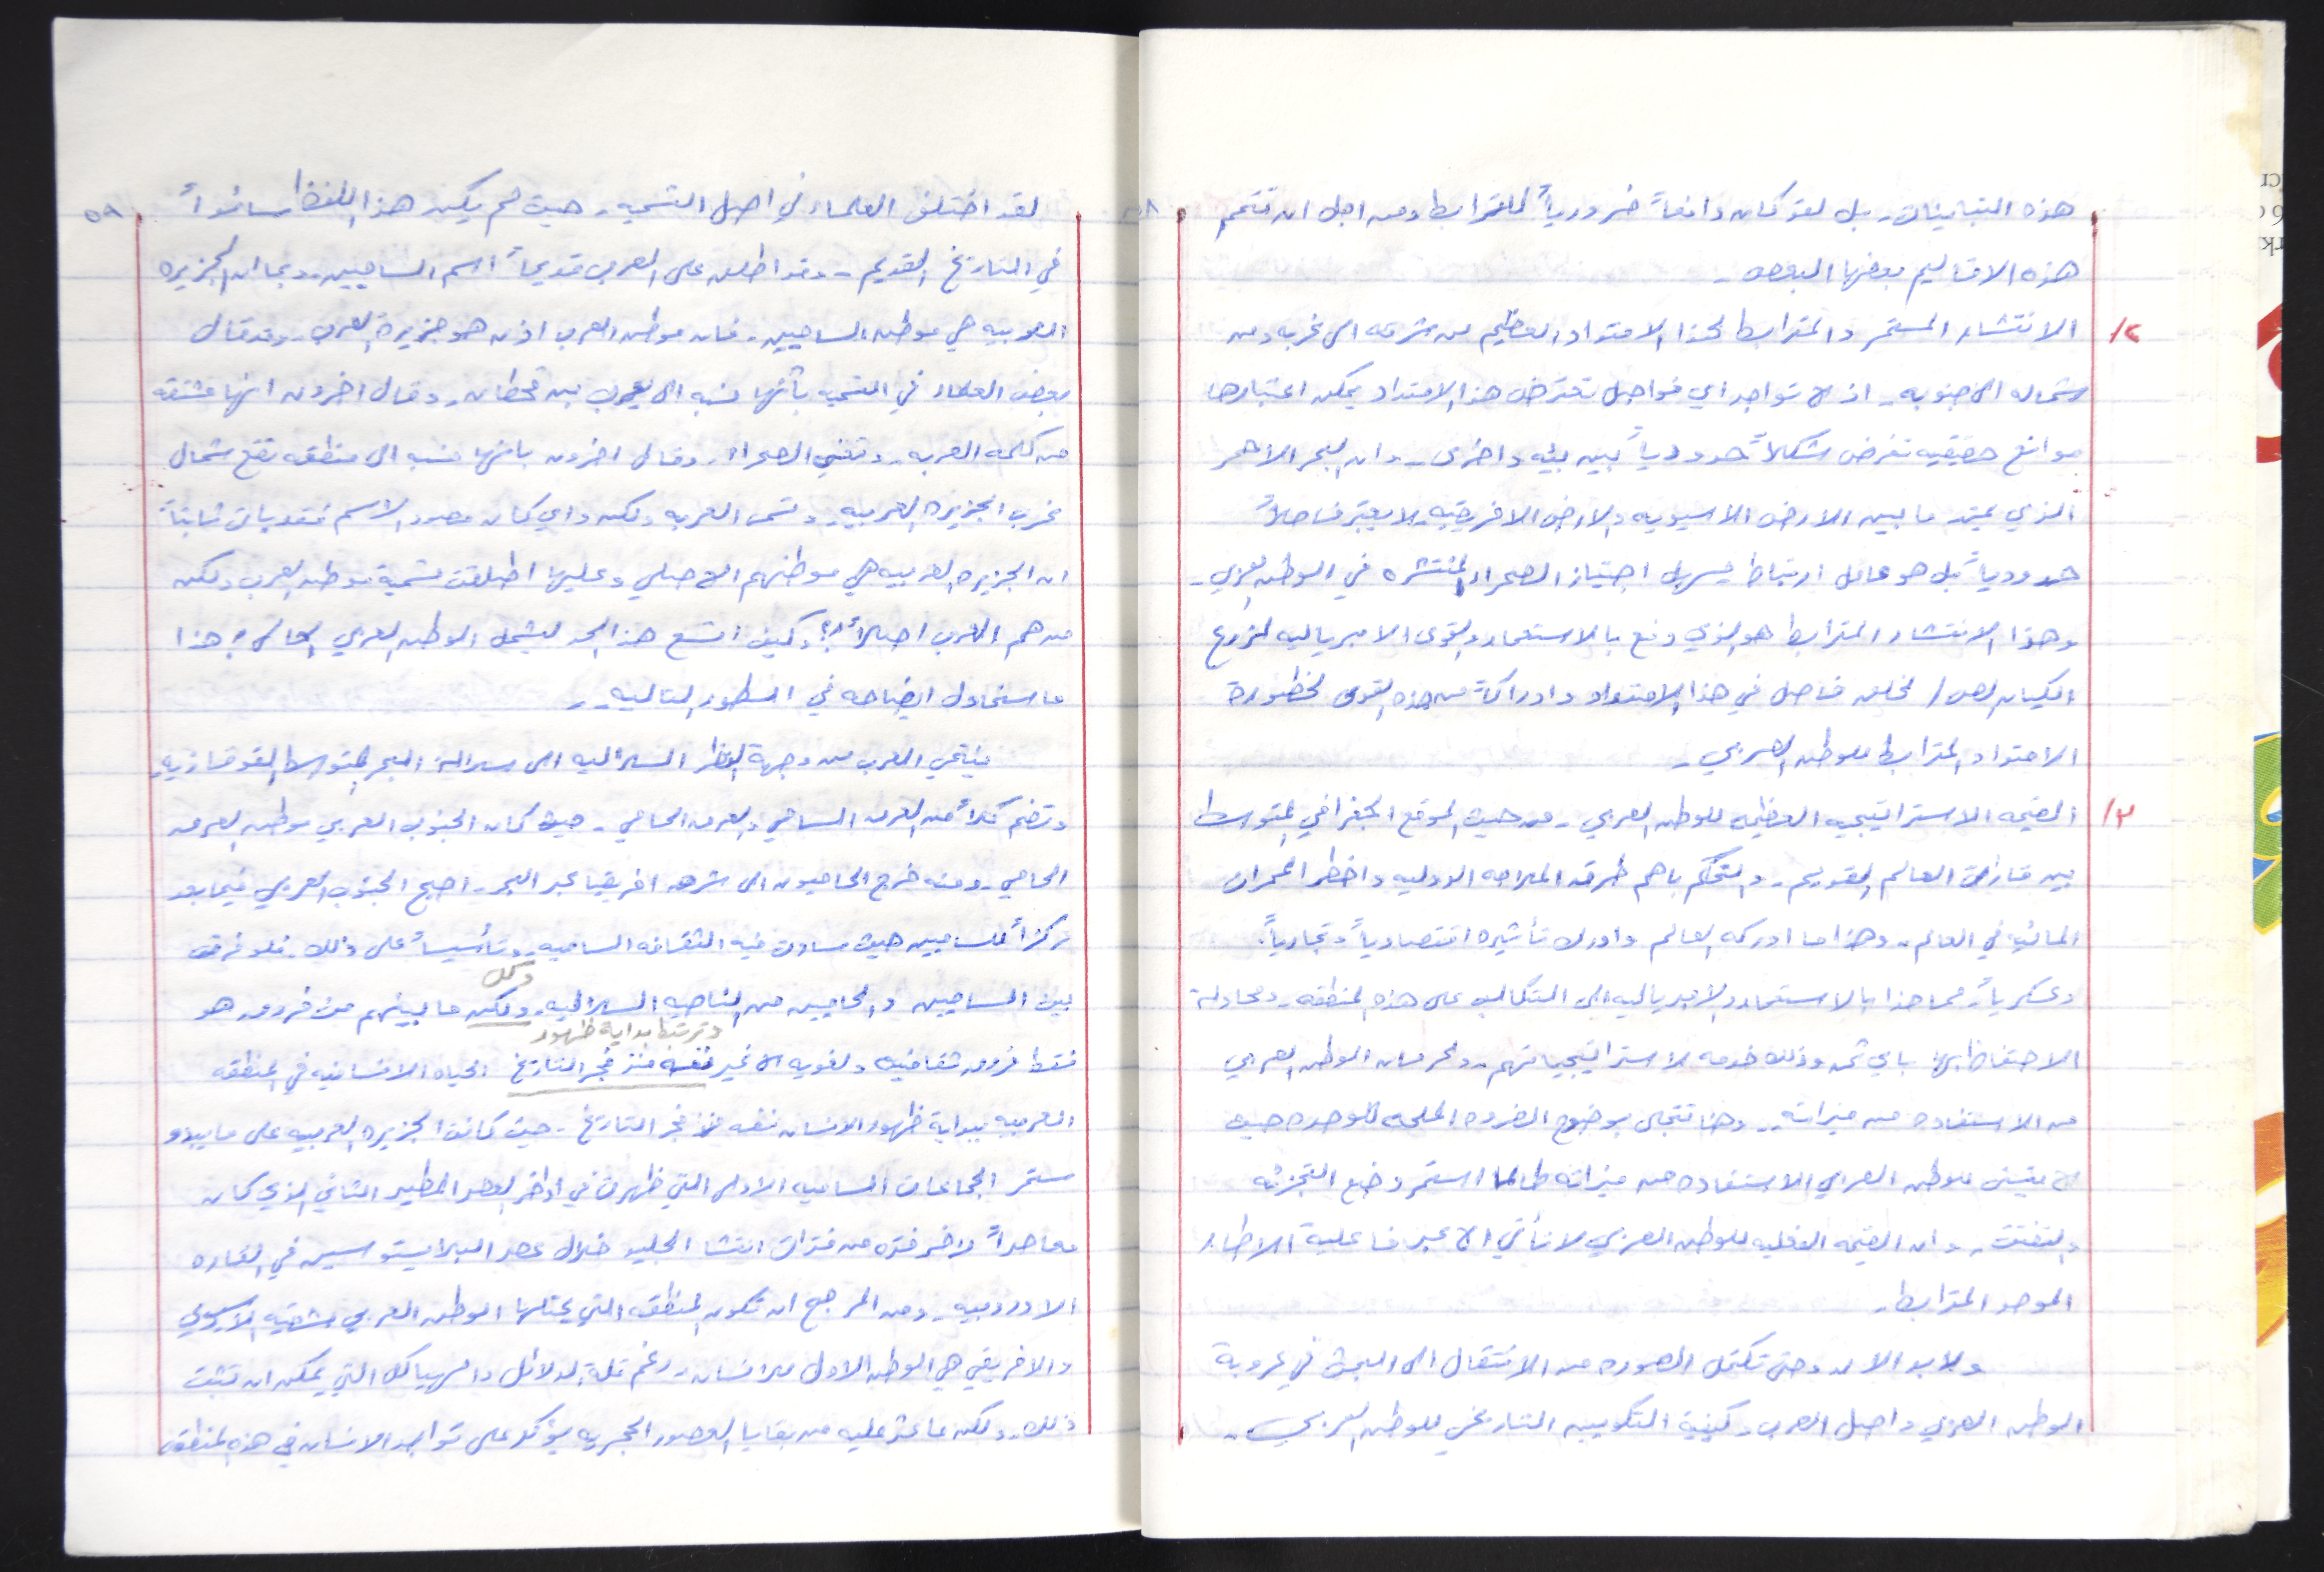 هذه التباينات. بل لقد كان دافعاً ضرورياً للترابط ومن اجل ان تتمم
هذه الاقاليم بعضها البعض.
٢/ الانتشار المستمر والمترابط لهذا الامتداد العظيم من شرقه الى غربه ومن
شماله الى جنوبه. اذ لا تواجد اي فواصل تعترض هذا الامتداد يمكن اعتبارها
موانع حقيقيه تفرض شكلاً حدودياً بين بيئه واخرى. وان البحر الاحمر
الذي يمتد ما بين الارض الاسيويه والارض الافريقيه لا يعتبر فاصلاً
حدودياً بل هو عامل ارتباط يسهل اجتياز الصحراء المنتشره في الوطن العربي.
وهذا الانتشار المترابط هو الذي دفع بالاستعمار والقوى الامبرياليه لزرع
الكيان الص/ لخلق فاصل في هذا الامتداد وادراكاً من هذه القوى لخطورة
الامتداد المترابط للوطن العربي.
٣/ القيمه الاستراتيجيه العظيمه للوطن العربي. من حيث الموقع الجغرافي المتوسط
بين قارات العالم القديم. والتحكم باهم طرق الملاحه الدوليه واخطر الممرات
المائيه في العالم. وهذا ما ادركه العالم وادرك تأثيره اقتصادياً وتجارياً.
وعسكرياً. مما حذا بالاستعمار والامبرياليه الى التكالب على هذه المنطقه. ومحاولة
الاحتفاظ بها باي ثمن وذلك خدمه لاستراتيجياتهم. ولحرمان الوطن العربي
من الاستفاده من ميزاته.. وهنا تتجلى بوضوح الضروره الملحه للوحده حيث
لا يتسنى للوطن العربي الاستفاده من ميزاته طالما استمر وضع التجزئه
والتفتت. وان القيمه الفعليه للوطن العربي لا تأتي الا عبر فاعلية الاطار
الموحد المترابط.
ولابد الان وحتى تكتمل الصوره من الانتقال الى البحث في عروبة
الوطن العربي واصل العرب وكيفية التكوين التاريخي للوطن العربي.
٥٨
٥٩
لقد اختلف العلماء في اصل التسميه. حيث لم يكن هذا اللفظ سائداً
في التاريخ القديم. وقد اطلق على العرب قديماً اسم الساميين. وبما ان الجزيره
العربيه هي موطن الساميين. فان موطن العرب اذن هو جزيرة العرب. وقد قال
بعض العلماء في التسميه بأنها نسبه الى يعرب بن قحطان. وقال اخرون انها مشتقه
من كلمه العربه. وتعني الصحراء. وقال اخرون بانها نسبه الى منطقه تقع شمال
غرب الجزيره العربيه. وتسمى العربه ولكن واي كان مصدر الاسم فقد بات ثابتاً
ان الجزيره العربيه هي موطنهم الاصلي وعليها اطلقت تسمية موطن العرب ولكن
من هم العرب اصلاً؟! وكيف اتسع هذا الحد ليشمل الوطن العربي الحالي؟ هذا
ما سنحاول ايضاحه في السطور التاليه.
ينتمي العرب من وجهة النظر السلاليه الى سلالة البحر المتوسط القوقازيه
وتضم كلاً من العرق السامي والعرق الحامي. حيث كان الجنوب العربي موطن العرق
الحامي. ومنه خرج الحاميون الى شرق افريقيا عبر البحر. اصبح الجنوب العربي فيما بعد
مركزاً للساميين حيث سادت فيه الثقافه الساميه. وتأسيساً على ذلك. فلا فرق
بين الساميين والحاميين من الناحيه السلاليه. ولكن وكل ما بينهم من فروق هو
فقط فروق ثقافيه ولغويه لا غير نفسه منذ فجر التاريخ وترتبط بداية ظهور الحياه الانسانيه في المنطقه
العربيه ببداية ظهور الانسان نفسه منذ فجر التاريخ. حيث كانت الجزيره العربيه على ما يبدو
مستقر الجماعات الساميه الاولى التي ظهرت في اواخر العصر المطير الثاني الذي كان
معاصراً لاخر فتره من فترات انتشار الجليد خلال عصر البلايستوسين في القاره
الاوروبيه. ومن المرجح ان تكون المنطقه التي يحتلها الوطن العربي بشقيه الاسيوي
والافريقي هي الوطن الاول للانسان. رغم قلة الدلائل والهياكل التي يمكن ان تثبت
ذلك. ولكن ما عثر عليه من بقايا العصور الحجريه يؤكد على تواجد الانسان في هذه المنطقه